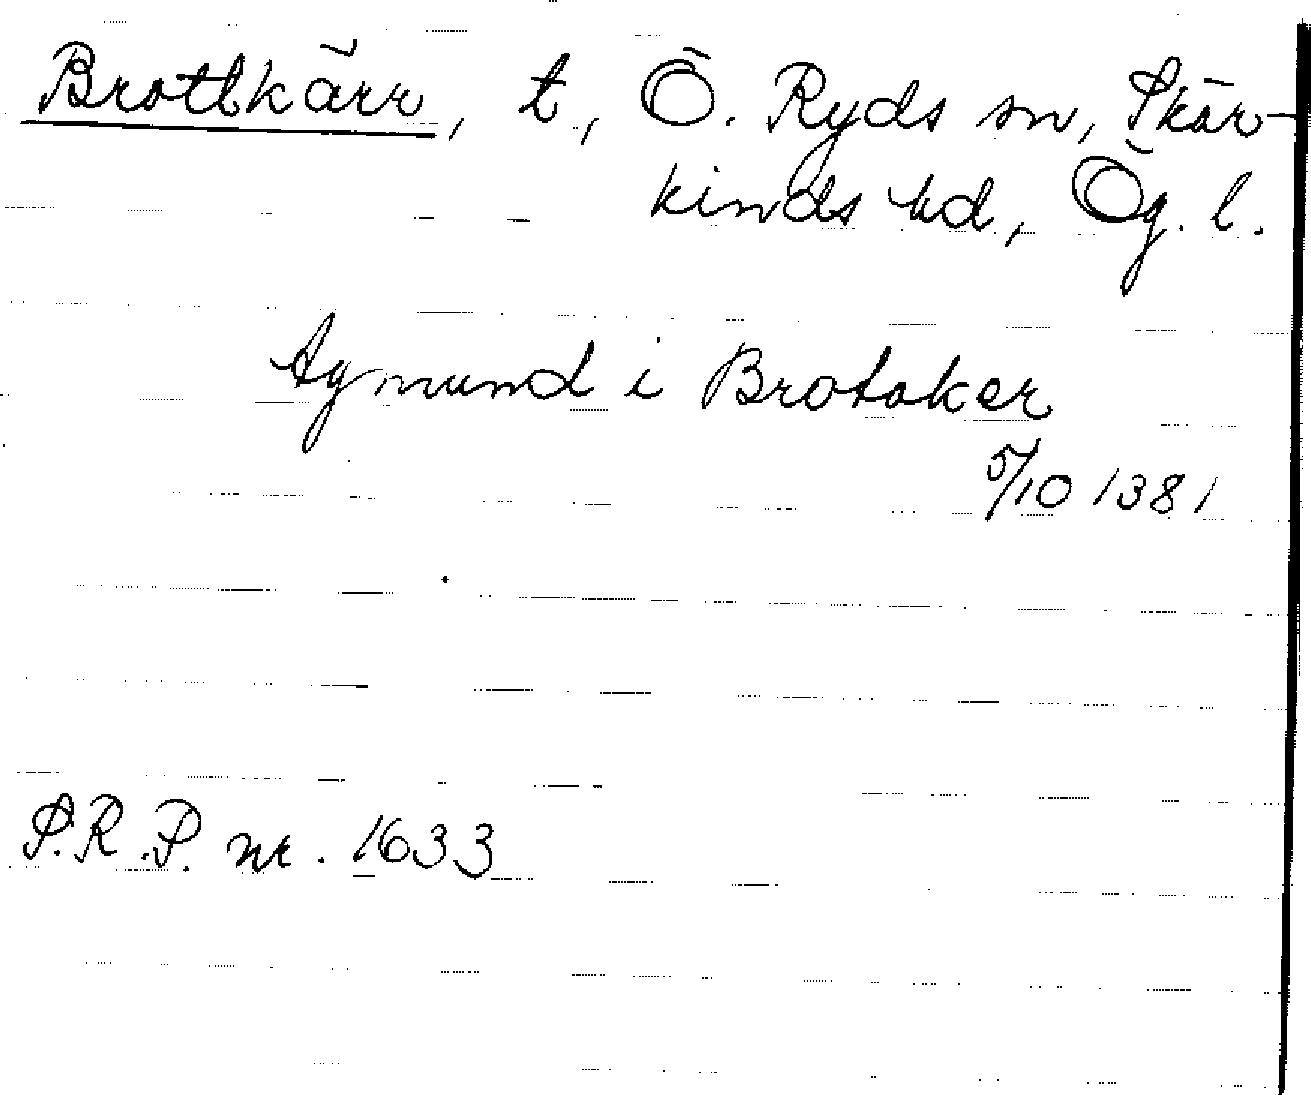 Brottkärr, t, Ö. Ryds sn, Skär-
kinds hd, Ög. l.
Agmund i Brotaker
5/10 1381
S.R.P. nr. 1633